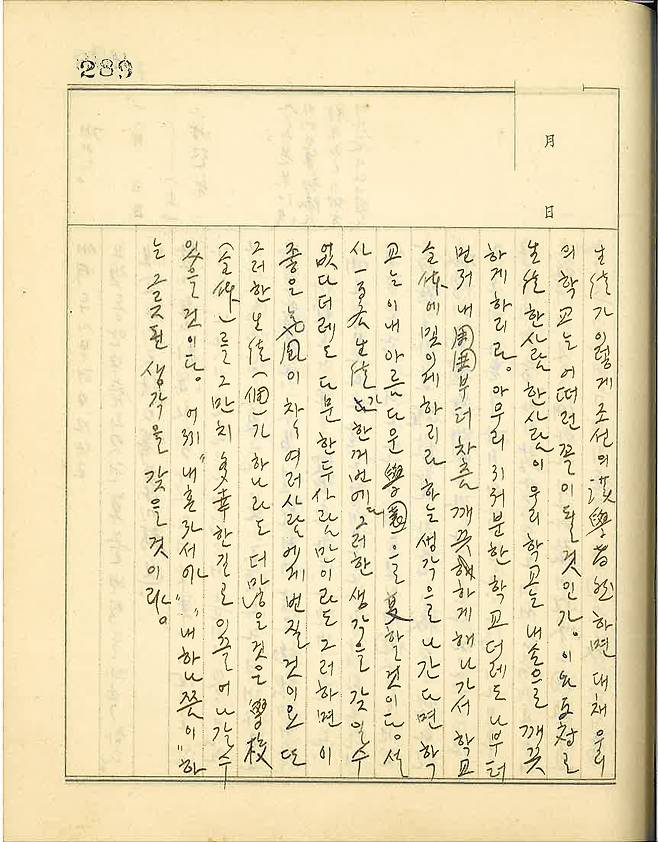 289
月
日
生徒가 이렇게 조선의 漢學者然 하면 대체 우리
의 학교는 어떠런 꼴이 될것인가。 이와 反対로
生徒 한사람 한사람이 우리학교는 내손으로 깨끗
하게 하리라。 아무리 지저분한 학교더레도 나부터
먼저 내 周囲부터 차츰 깨끗하게 해나가서 학교
全体에 및이게 하리라 하는 생각으로 나간다면 학
교는 이내 아름다운 學園으로 変할것이다。 설
사 一百名 生徒가 한꺼번에 다 그러한 생각을 갖일수
없다더레도 다문 한두사람만이라도 그러하면 이
좋은 気風이 차々 여러사람에게 번질 것이요 또
그러한 生徒(個)가 하나라도 더 많을 것은 學校
(全体)를 그만치 多幸한 길로 잇끌어 나갈수
있을 것이다。 어찌 "내 혼자서야" "내 하나쯤이" 하
는 그릇된 생각을 갖을것이랴。